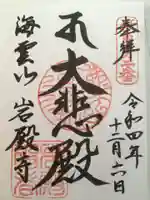 奉拝
令和四年
十二月六日
大悲殿
海雲山
岩殿寺